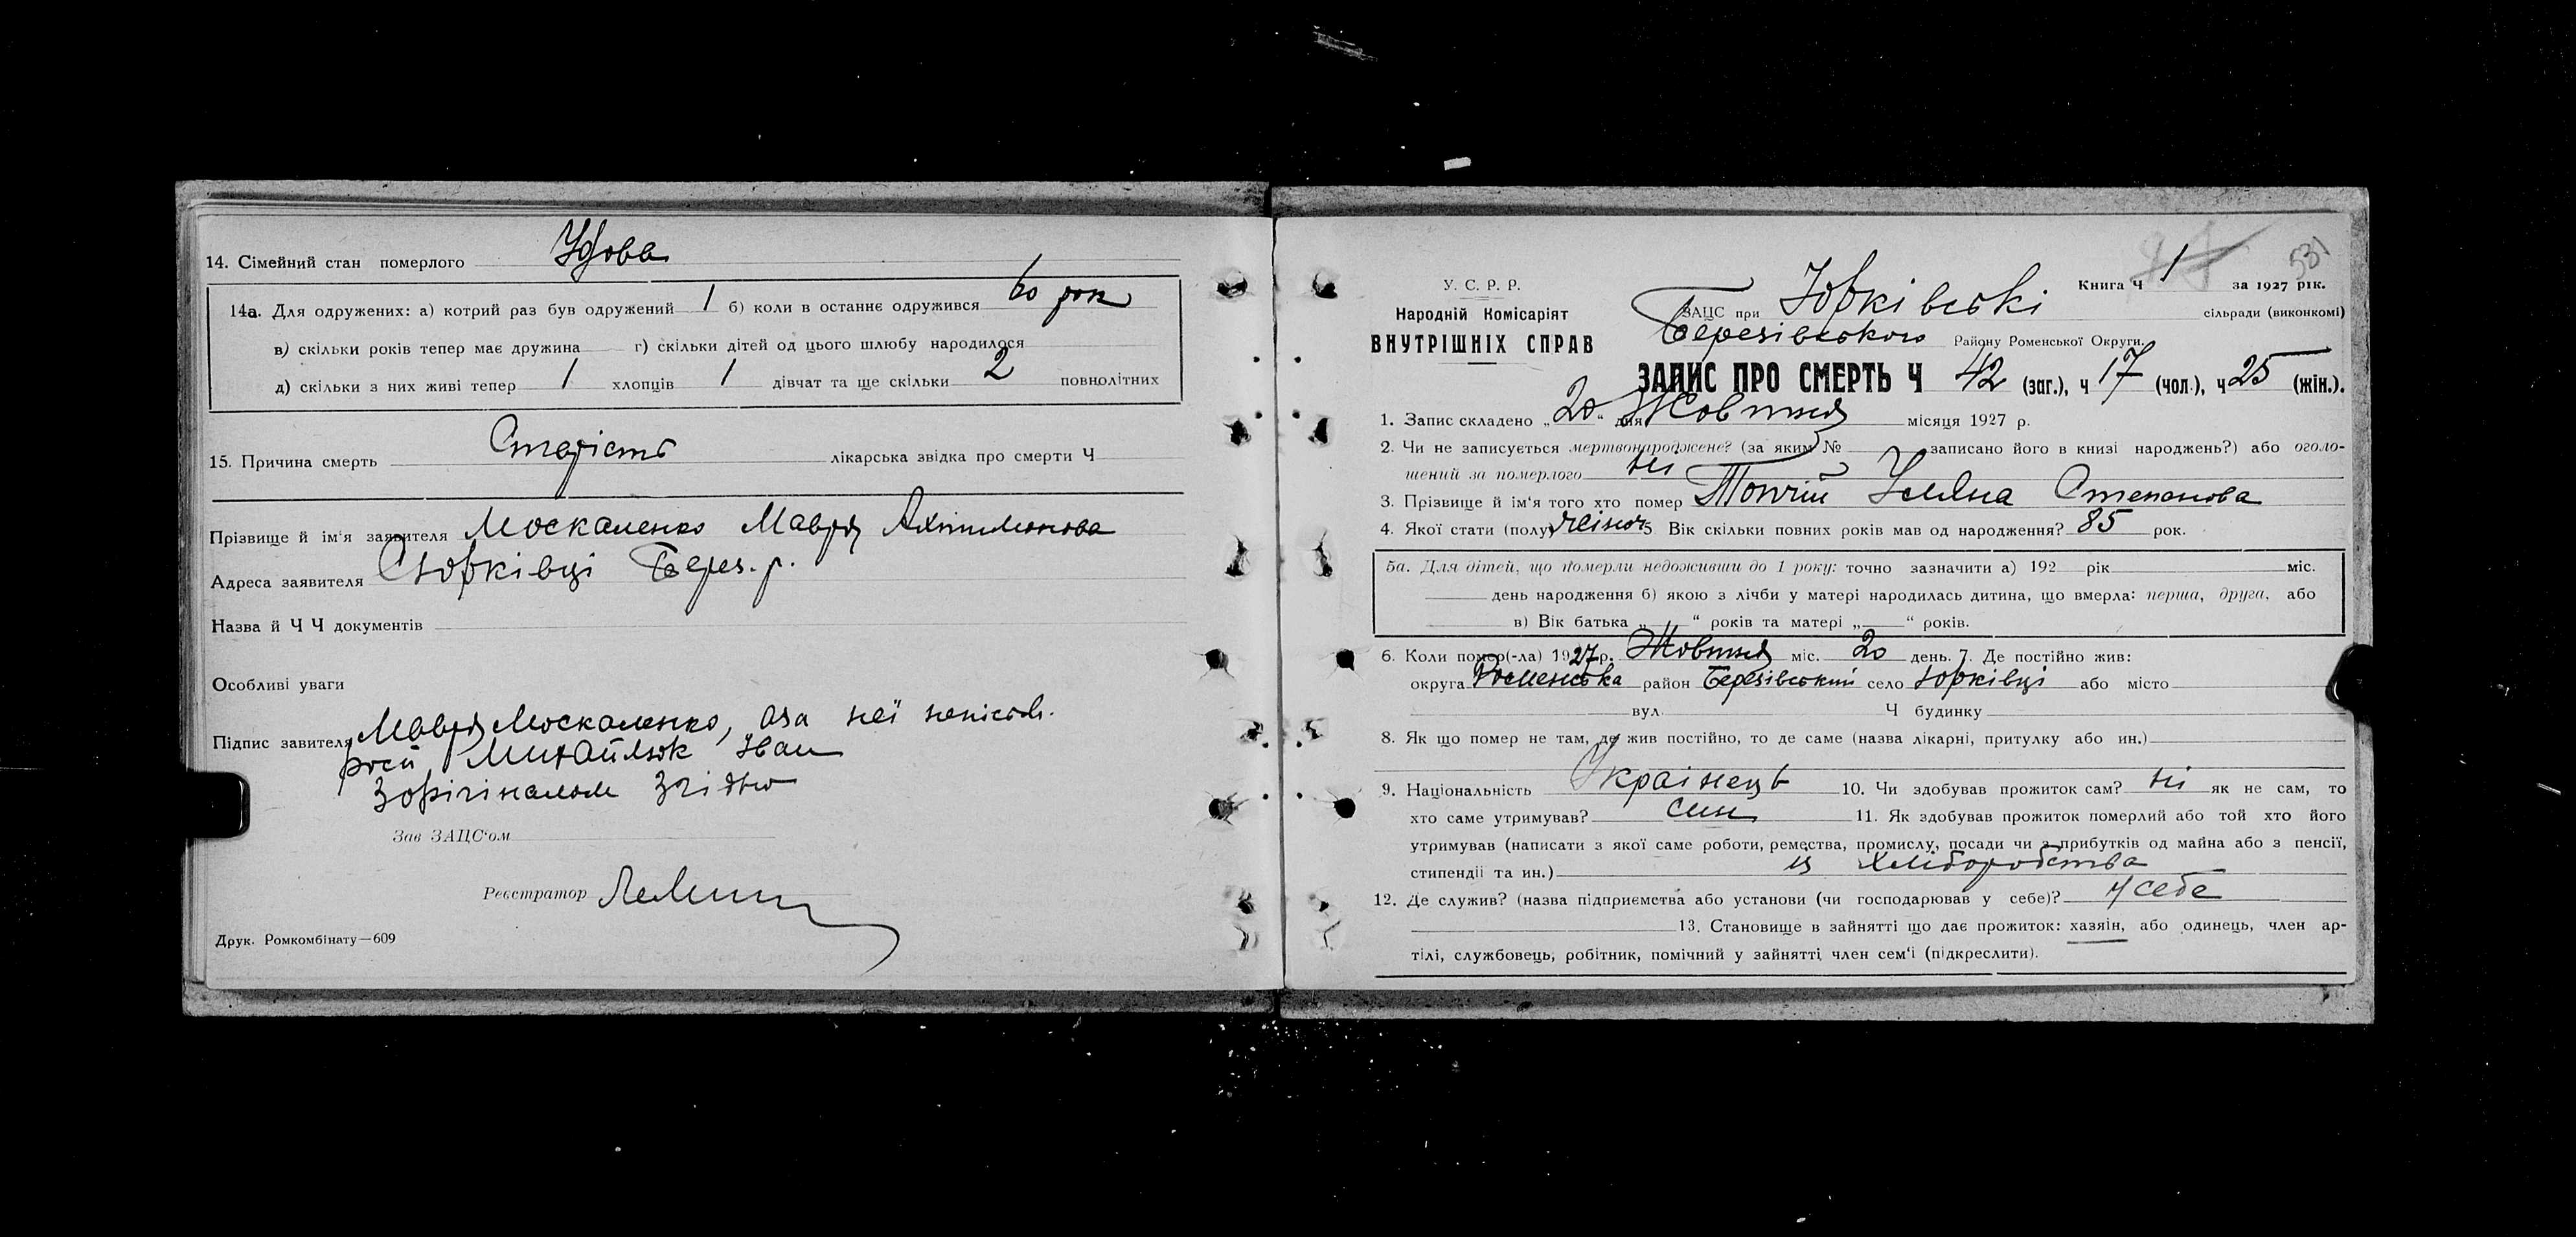 14. Сімейний стан померлого Удова
14а. Для одружених: а) котрий раз був одружений 1 б) коли в останнє одружився 60 рок
в) скільки років тепер має дружина г) скільки дітей од цього шлюбу народилося
д) скільки з них живі тепер 1 хлопців 1 дівчат та ще скільки 2 повнолітних
15. Причина смерть Старість лікарська звідка про смерти Ч
Прізвище й ім'я заявителя Москаленко Мавря
Адреса заявителя Юрківці Берез. р.
Назва й Ч Ч документів
Особливі уваги
Підпис завителя Мавря Москаленко, а за неї неписьм.
росп. Михайлюк Іван
З орігіналом згідно
Зав ЗАЦС'ом
Реєстратор
Друк. Ромкомбінату—609
531
У. С. Р. Р.
Народній Комісаріят
ВНУТРІШНІХ СПРАВ
Книга Ч 1 за 1927 рік.
ЗАЦС при Юрківські сільради (виконкомі)
Березівського Району Роменської Округи.
ЗАПИС ПРО СМЕРТЬ Ч 42 (заг.), ч 17 (чол.), ч 25 (жін.).
1. Запис складено „20“ дня Жовтня місяця 1927 р.
2. Чи не записується мертвонароджене? (за яким № записано його в книзі народжень?) або оголо-
шений за померлого ні
3. Прізвище й ім'я того хто помер Топчій Уляна Степанова
4. Якої стати (полу) жіноч 5 Вік скільки повних років мав од народження? 85 рок.
5а. Для дітей, що померли недоживши до 1 року: точно зазначити а) 192 рік міс.
день народження б) якою з лічби у матері народилась дитина, що вмерла: перша, друга, або
в) Вік батька „ “ років та матері „ “ років.
6. Коли помер(-ла) 1927 р. Жовтня міс. 20 день. 7. Де постійно жив:
округа Роменська район Березівський село Юрківці або місто
вул. Ч будинку
8. Як що помер не там, де жив постійно, то де саме (назва лікарні, притулку або ин.)
9. Національність Українець 10. Чи здобував прожиток сам? ні як не сам, то
хто саме утримував? син 11. Як здобував прожиток померлий або той хто його
утримував (написати з якої саме роботи, ремества, промислу, посади чи з прибутків од майна або з пенсії,
стипендії та ин.) із хліборобства
12. Де служив? (назва підприємства або установи (чи господарював у себе)? у себе
13. Становище в зайнятті що дає прожиток: хазяїн, або одинець, член ар-
тілі, службовець, робітник, помічний у зайнятті член сем'ї (підкреслити).